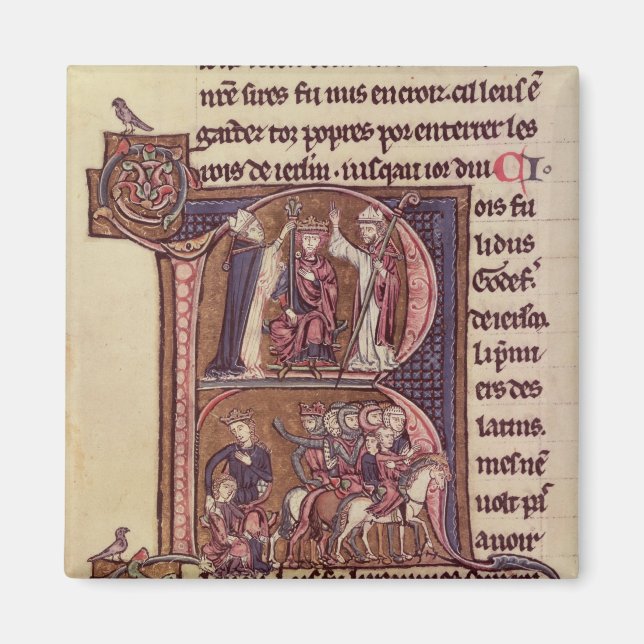 nr̄e sires fu mis en croiz. cil leus ē
garder toz propres por enterrer les
rois de ierl'm. iusqau ior dui
R
ois fu
Godef.
de ierl'm
li p̄mi
ers des
latins.
mes nē
uolt pas
auoir